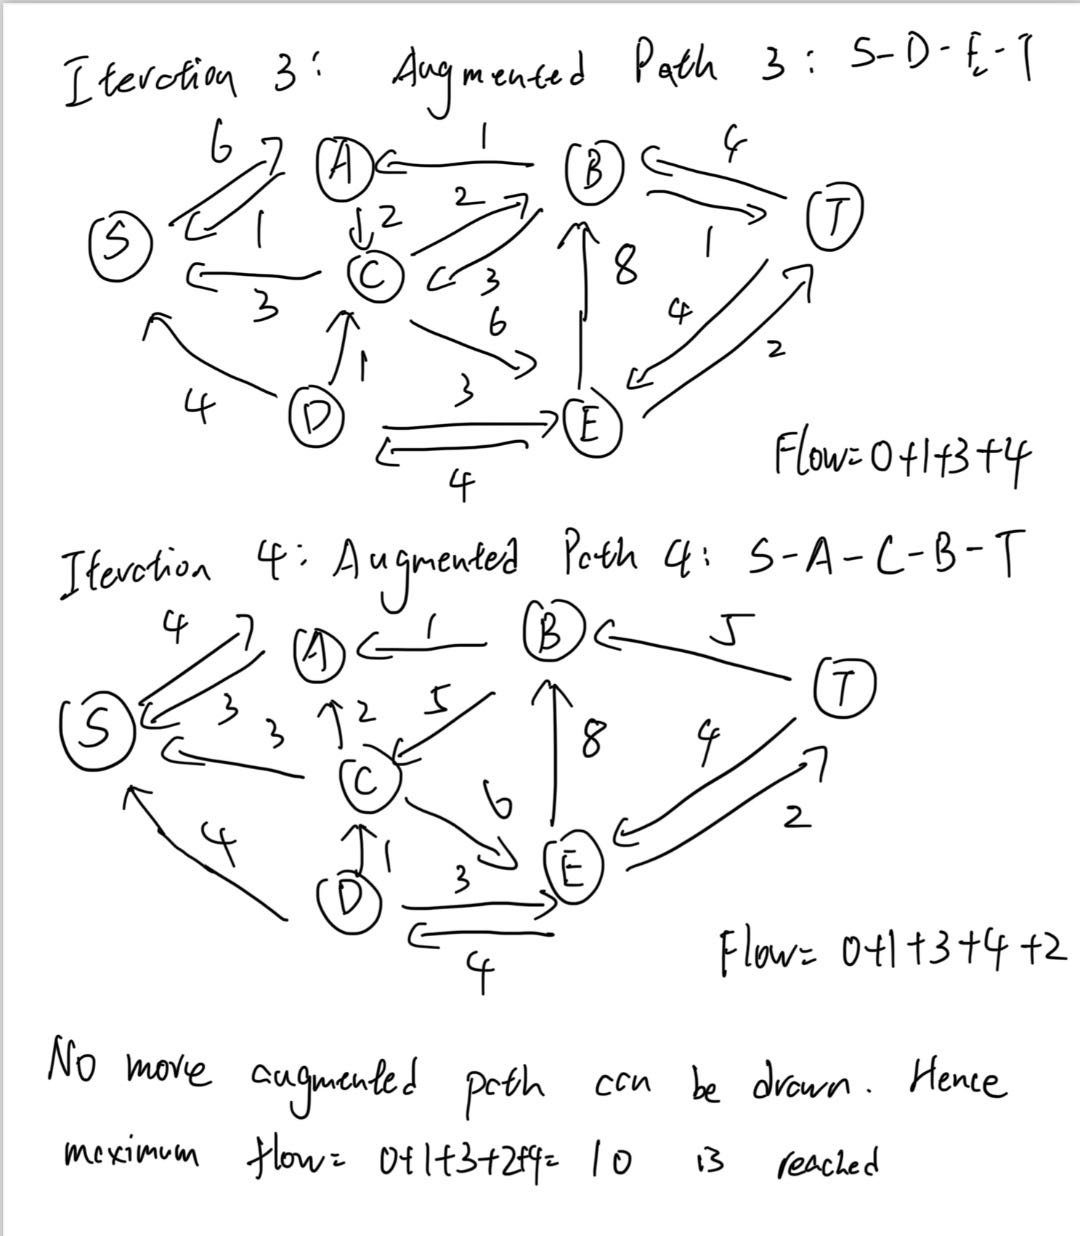 Iteration 3: Augmented Path 3: S-D-E-T
6 A 1 B 4
S 1 2 2 1 T
3 C 3 8 4
6 2
4 1 3
D E
4
Flow=0+1+3+4
Iteration 4: Augmented Path 4: S-A-C-B-T
4 A 1 B 5
S 3 2 5 T
3 C 8 4
6 2
4 1 3 E
D
4
Flow= 0+1+3+4+2
No more augmented path can be drawn. Hence
maximum flow= 0+1+3+2+4= 10 is reached